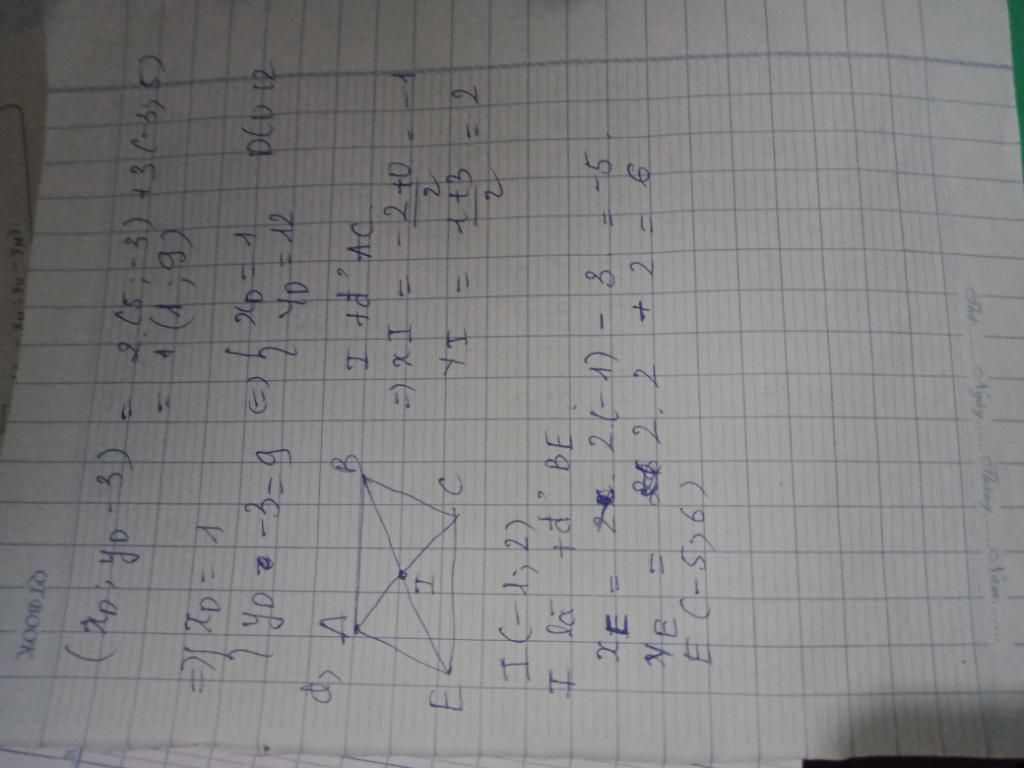 (x_D ; y_D - 3) = 2.(5 ; -3) + 3(-3 ; 5)
= (1 ; 9)
=> { x_D = 1
{ y_D - 3 = 9 <=> { x_D = 1
y_D = 12 D(1, 12
d,
A B
I
E C
I tđ' AC
=> xI = -2+0/2 = -1
yI = 1+3/2 = 2
I (-1; 2)
I là tđ' BE
x_E = 2.(-1) - 3 = -5
y_E = 2.2 + 2 = 6
E (-5; 6)